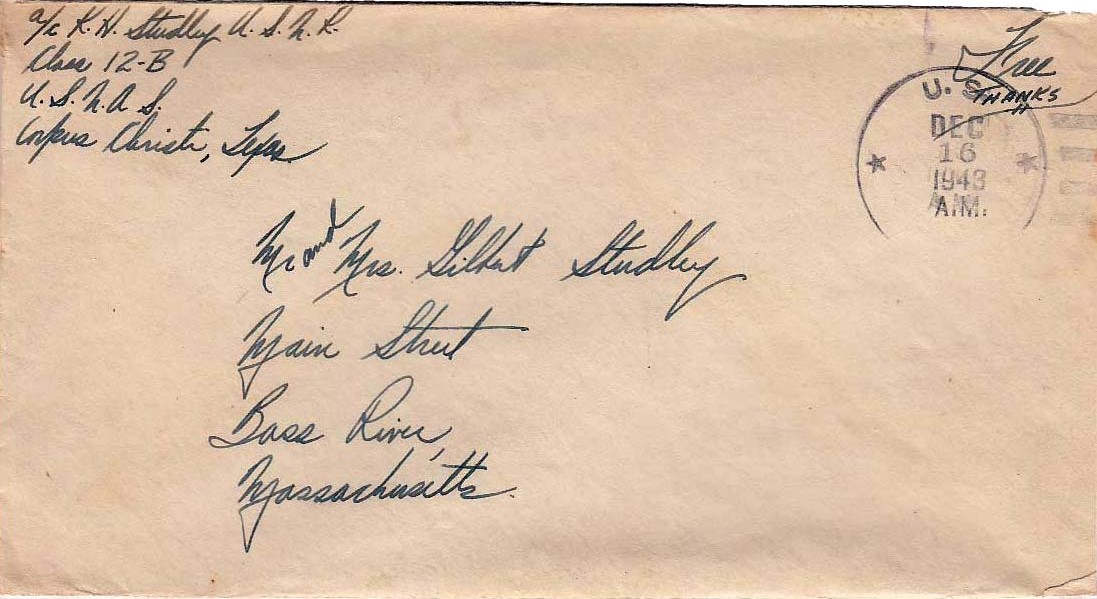 A/c K. H. Studley U.S.N.R.
Class 12-B
U.S.N.A.S.
Corpus Christi, Texas
Free
THANKS
U. S.
DEC
16
1943
A.M.
Mr and Mrs. Gilbert Studley
Main Street
Bass River,
Massachusetts.